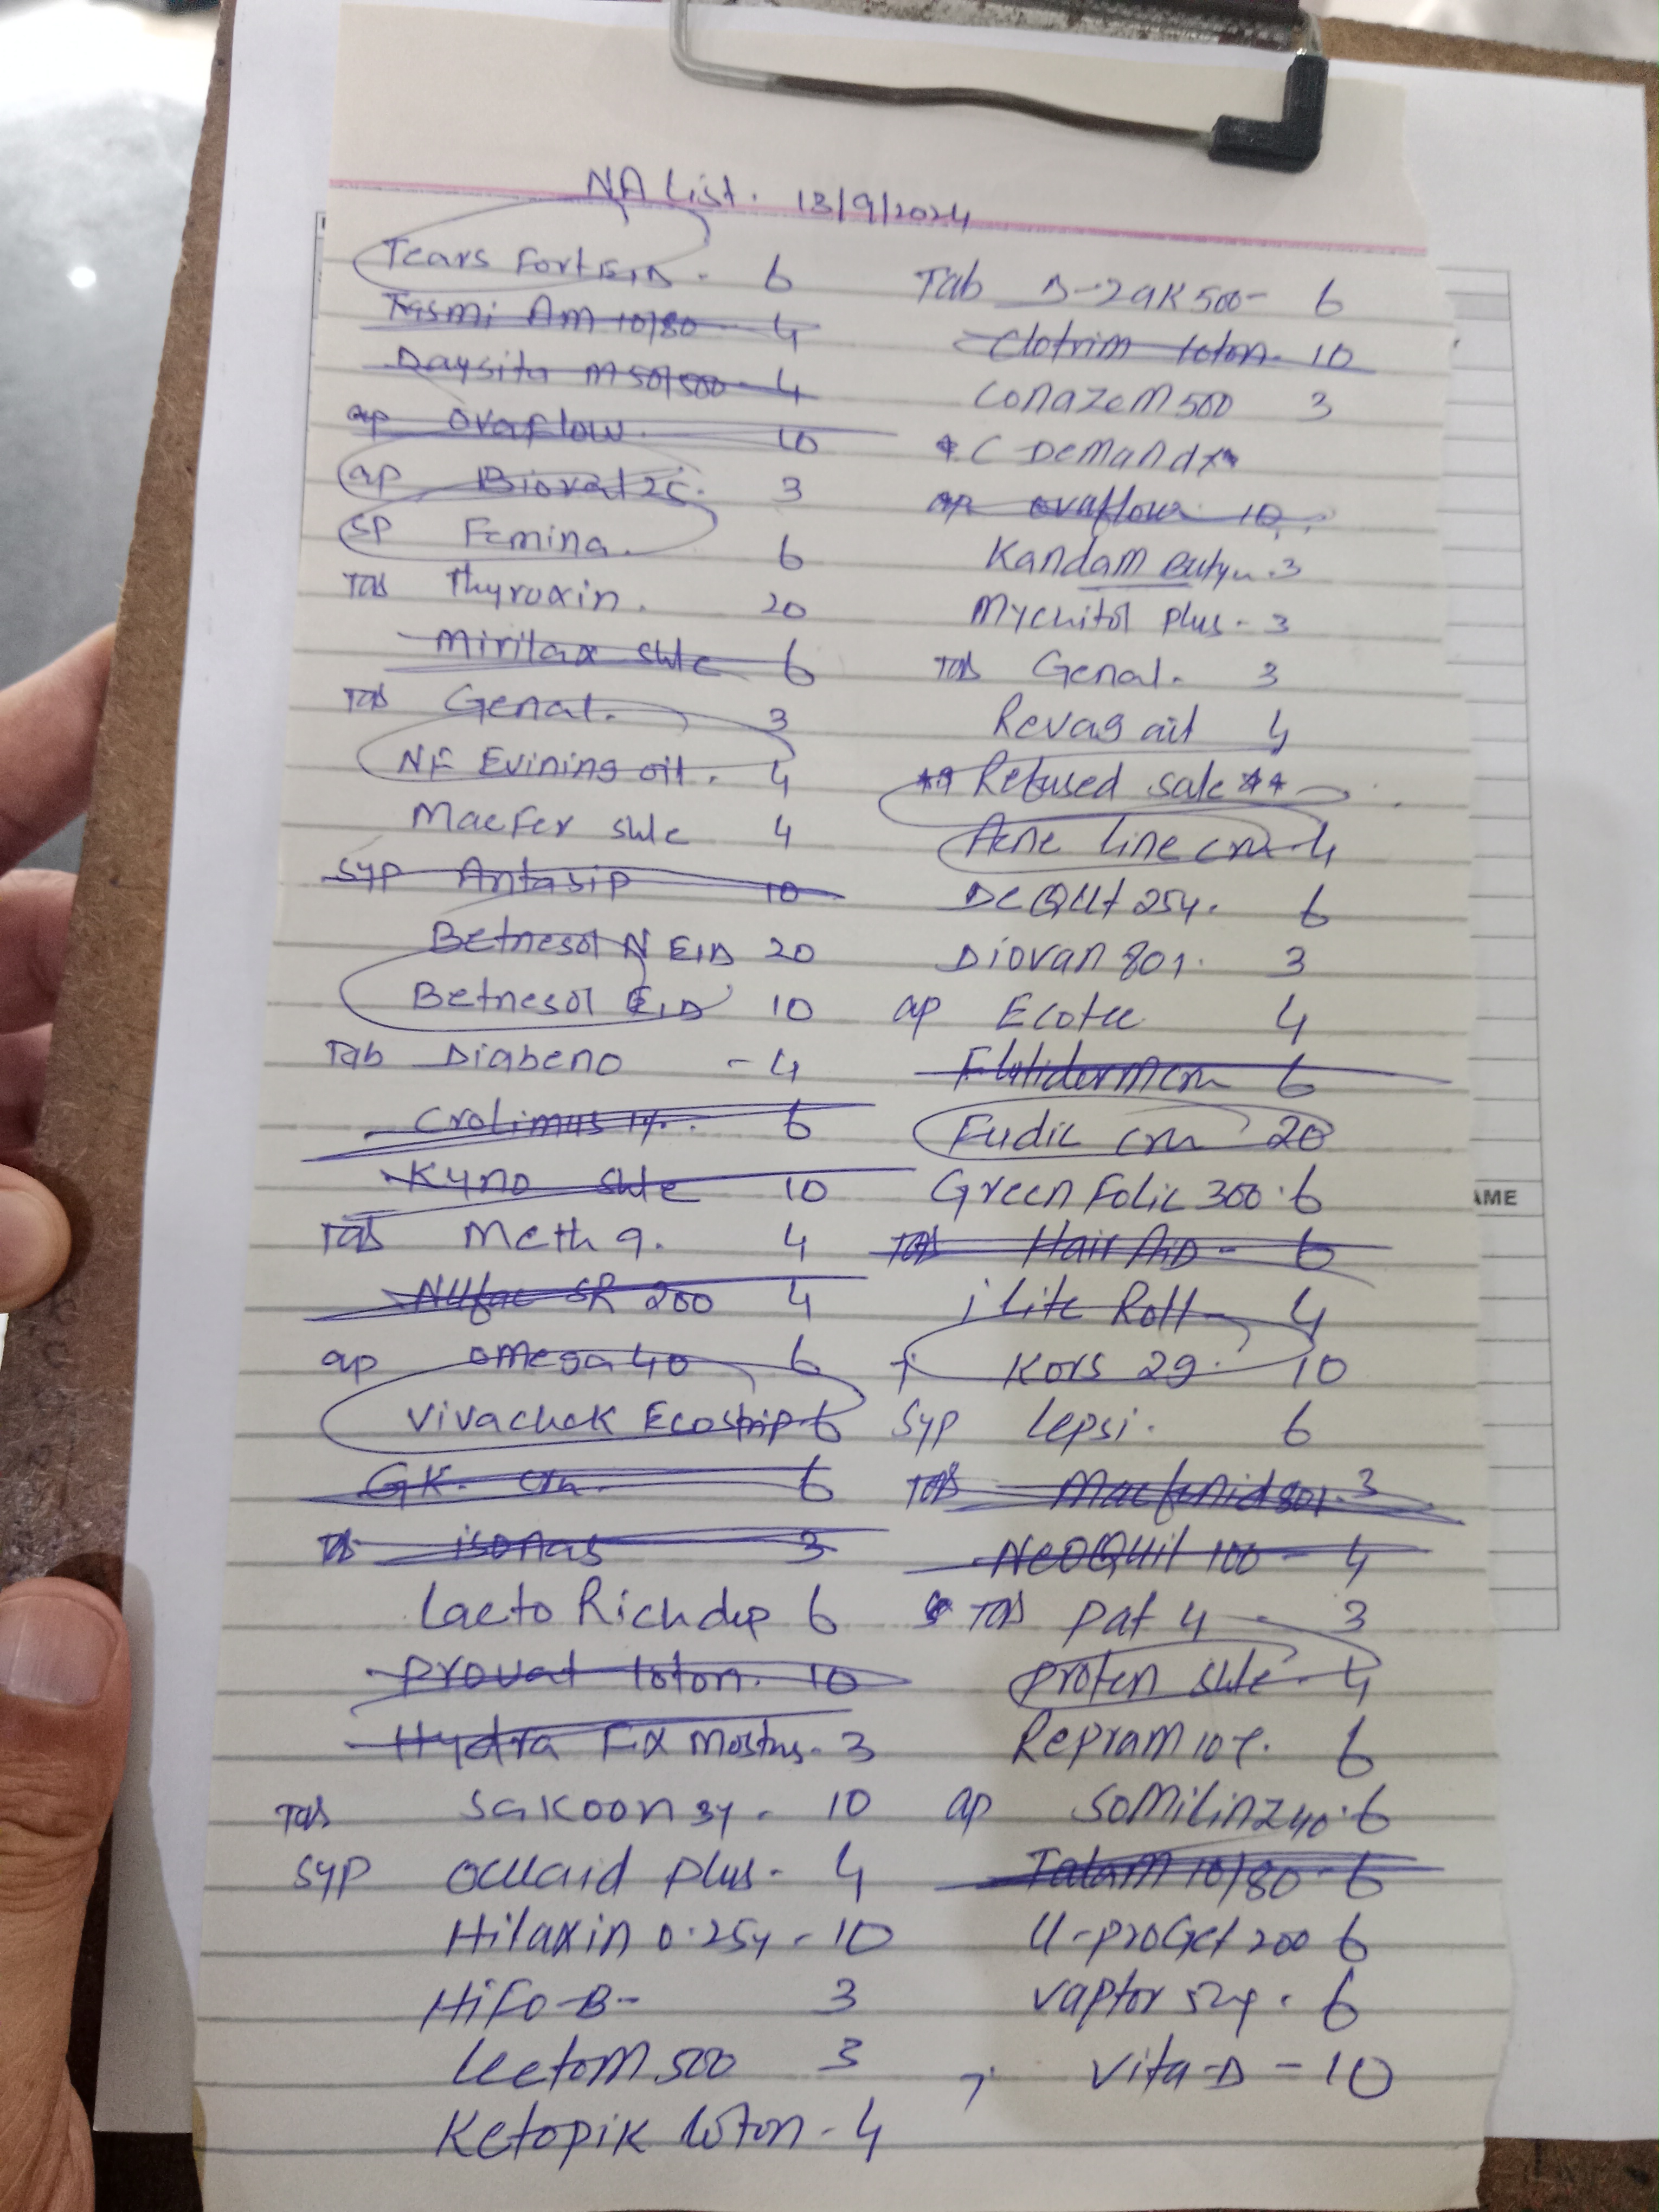 NA List. 13/9/2024
Tears Fort E/D. 6
Tasmi Am 10/80 - 4
Daysita M 50/500 - 4
ap ovaflow. 10
ap Bioval 3
SP Femina. 6
Tab Thyroxin. 20
Mirilax shle 6
Tab Genal. 3
NF Evining oil. 4
Maefer shle 4
Syp Antasip 10
Betnesol N E/D 20
Betnesol E/D 10
Tab Diabeno - 4
Crolimus 1%. 6
Kyno shle 10
Tab Meth 9. 4
Nufac SR 200 4
ap omega 40 6
Vivachek Ecostrip 6
GK. crm. 6
Tab isonas 3
Lacto Rich dep 6
Provat loton. 10
Hydra Fix - 3
Tab Sakoon 3y. 10
Syp occuaid plus - 4
Hilaxin 0.25y - 10
Hifo-B- 3
LeetoM 500 3
Ketopik loton - 4
Tab D-zak 500 - 6
Clotrim loton - 10
ConazeM 500 3
* C Demand **
ap ovaflow 10
Kandam - 3
Mychitol Plus - 3
Tab Genal. 3
Revag ait 4
** Refused sale **
Acne line crm - 4
DeQut 25y. 6
Diovan 80y. 3
ap Ecotec 4
Flutiderm crm 6
Fudic crm 20
Green Folic 300 . 6
Tab Hair AiD - 6
i Lite Roll - 4
Kors 2g. 10
Syp Lepsi. 6
Tab 3
NeoQuil 100 - 4
Tab Pat 4 - 3
Proten shle - 4
Repram 10y. 6
ap SoMilinz 40 . 6
TalaM 10/80 - 6
U-proGet 200 6
Vaptor 5y. 6
Vita-D - 10
AME